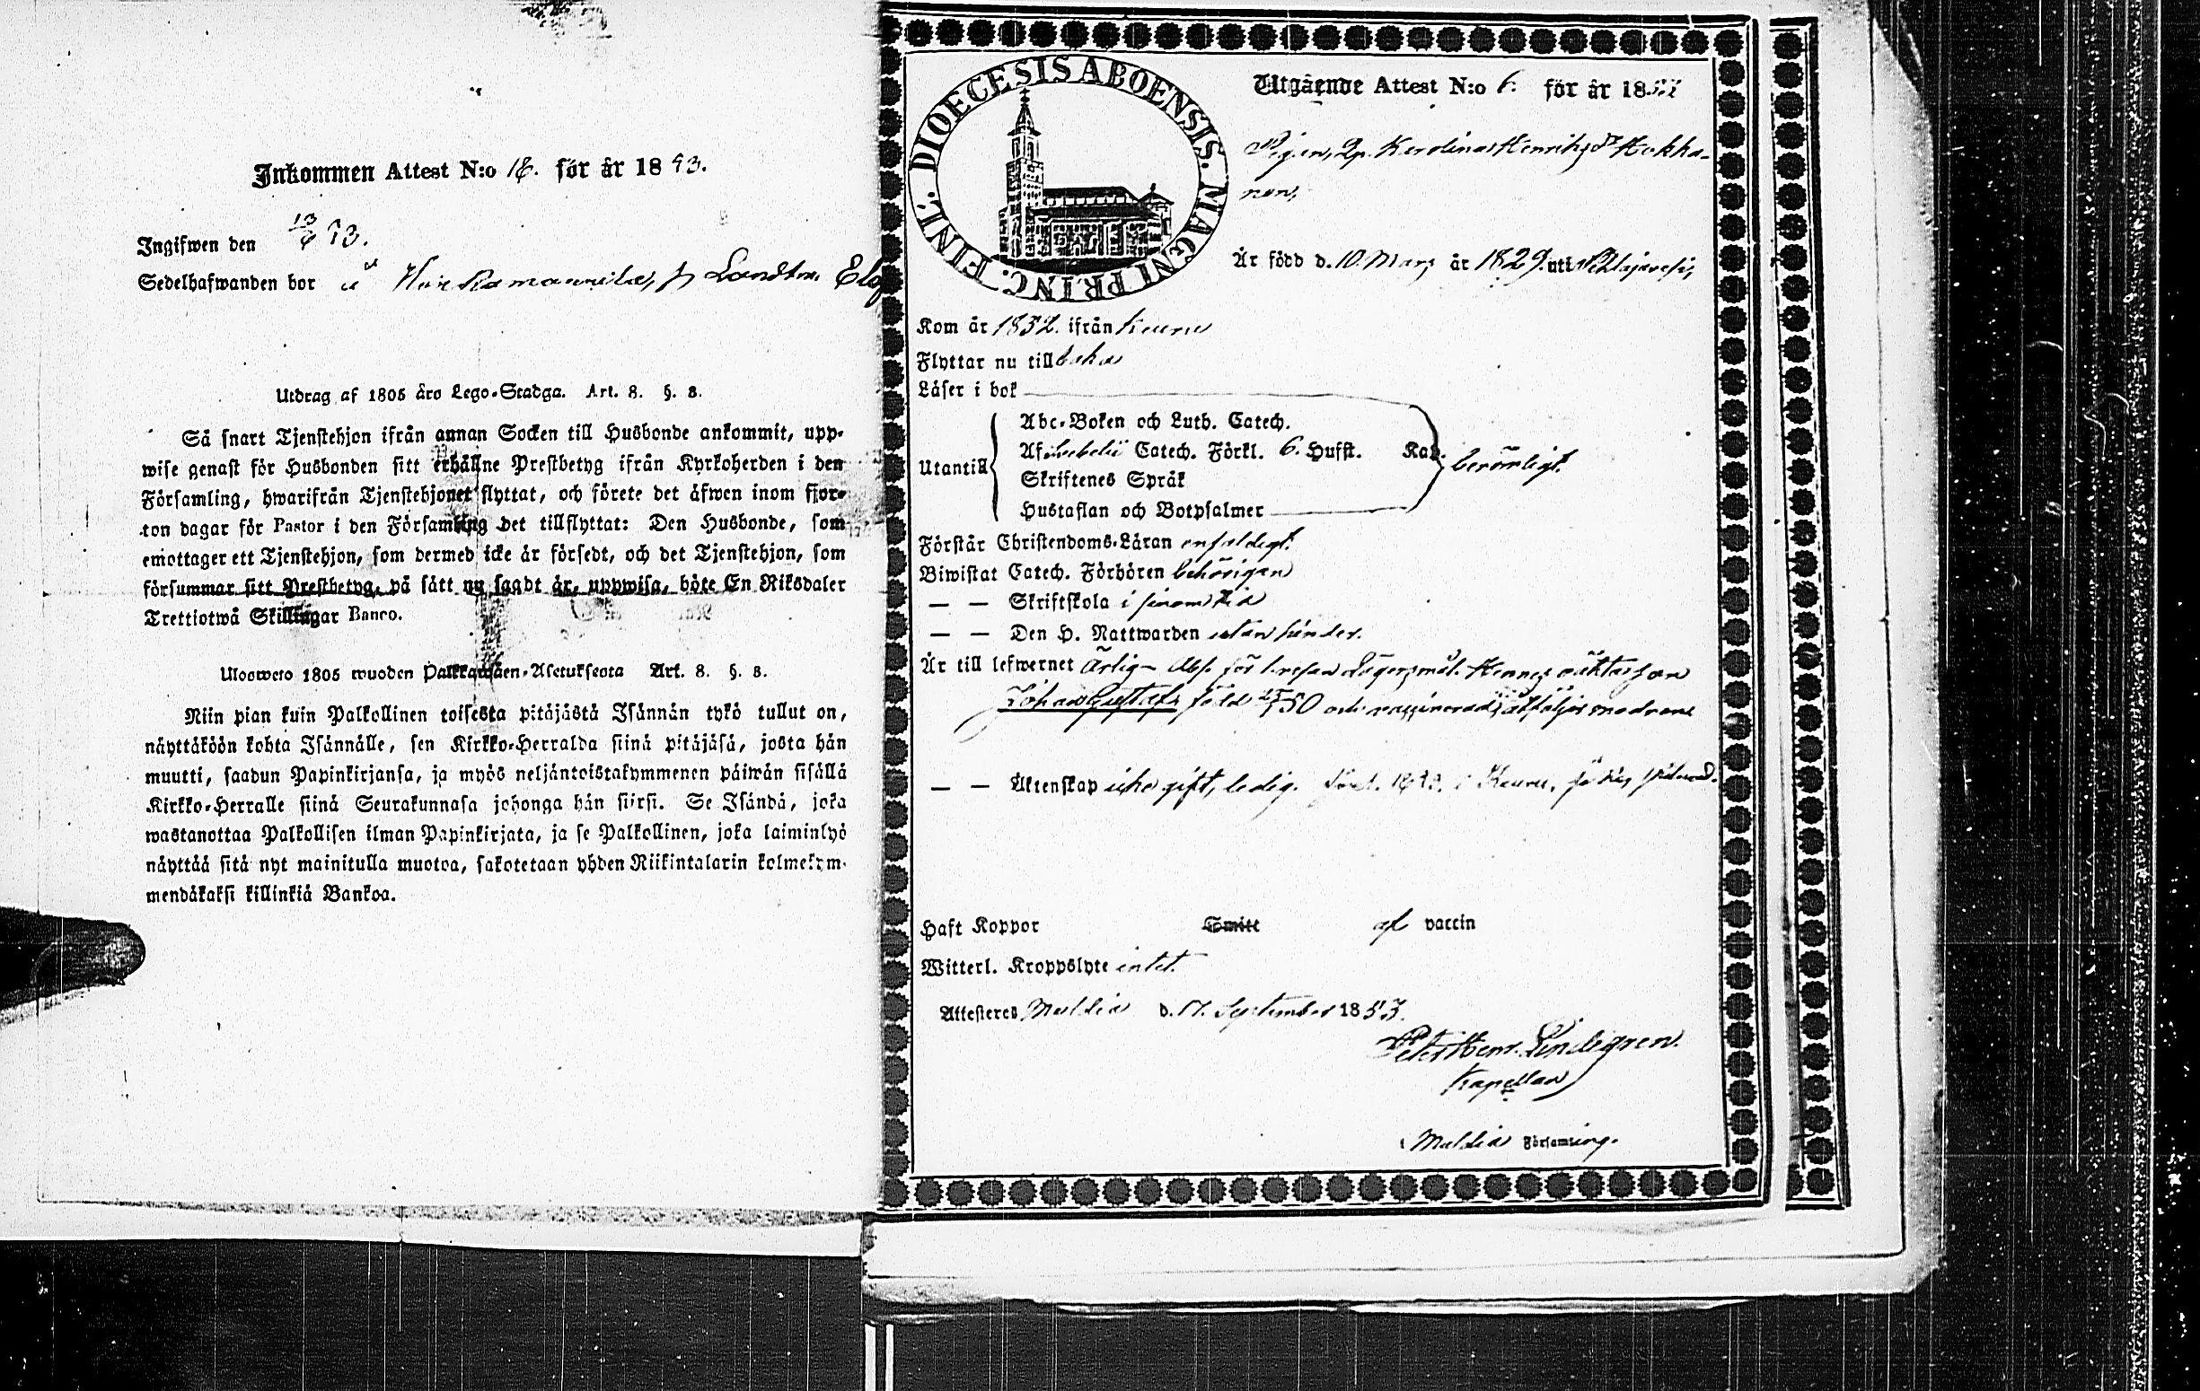 Inkommen Attest N:o 18. för år 1853.
Ingifwen den 13/9 53.
Sedelhafwanden bor å Landtm. Elg
Utdrag af 1805 års Lego-Stadga. Art. 8. §. 8.
Så snart Tjenstehjon ifrån annan Socken till Husbonde ankommit, upp-
wise genast för Husbonden sitt erhållne Prestbetyg ifrån Kyrkoherden i den
Församling, hwarifrån Tjenstehjonet flyttat, och förete det äfwen inom fjor-
ton dagar för Pastor i den Församling det tillflyttat: Den Husbonde, som
emottager ett Tjenstehjon, som dermed icke är försedt, och det Tjenstehjon, som
försummar sitt Prestbetyg, på sätt nu sagdt är, uppwisa, böte En Riksdaler
Trettiotwå Skillingar Banco.
Ulosweto 1805 wuoden Palkkawäen-Asetuksesta Art. 8. §. 8.
Niin pian kuin Palkollinen toisesta pitäjästä Isännän tykö tullut on,
näyttäköön kohta Isännälle, sen Kirkko-Herralda siinä pitäjäsä, josta hän
muutti, saadun Papinkirjansa, ja myös neljäntoistakymmenen päiwän sisällä
Kirkko-Herralle siinä Seurakunnasa johonga hän siirsi. Se Isändä, joka
wastanottaa Palkollisen ilman Papinkirjata, ja se Palkollinen, joka laiminlyö
näyttää sitä nyt mainitulla muotoa, sakotetaan yhden Riikintalarin kolmekym-
mendäkaksi killinkiä Bankoa.
DIOECESIS ABOENSIS. MAGNI PRINC. FINL.
Utgående Attest N:o 6. för år 1853
Pigan, Qp. Karolina Henriks dr Hokka-
nen,
Är född d. 10. Mars år 1829. uti Pihlajavesi,
Kom år 1852. ifrån Keuru
Flyttar nu tillbaka
Läser i bok
Utantill
Abc-Boken och Luth. Catech.
Af Svebelii Catech. Förkl. 6. Hufst. Kap. berömligt.
Skriftenes Språk
Hustaflan och Botpsalmer
Förstår Christendoms-Läran enfaldigt.
Biwistat Catech. Förhören behörigen
— — Skriftskola i sinom tid
— — Den H. Nattwarden utan hinder.
Är till lefwernet Ärlig - Abs. för Lägersmål. Hennes oäkta son
Johan Gustaf, född 50 och vaccinerad, åtföljer modren
— — Äktenskap icke gift, ledig. i Keuru,
Haft Koppor Smitt af vaccin
Witterl. Kroppslyte intet.
Attesteres Multia d. 17. September 1853.
Peter Henr. Lindegren.
Kapellan
i Multia Församling.